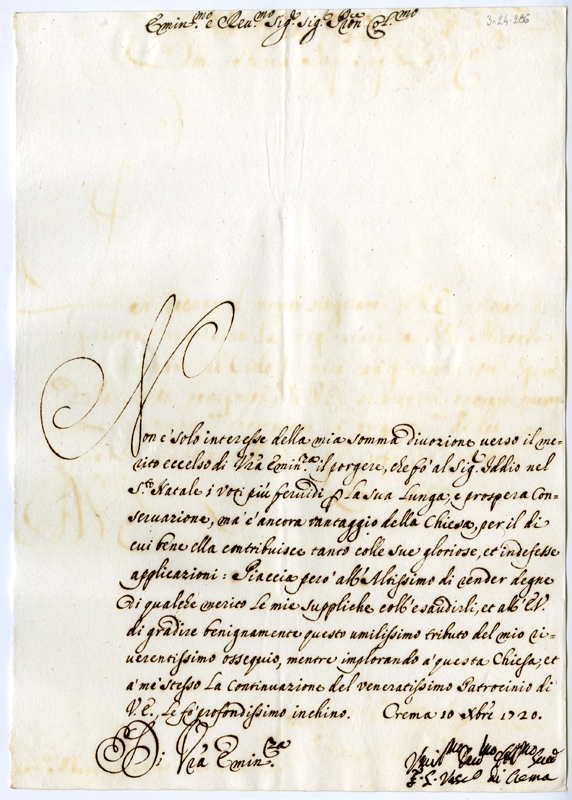 3-24-286
Emin.mo e Reu.mo Sig.r Sig.r Pron Col.mo
Non è solo interesse della mia somma divozione verso il me=
rito eccelso di Vra Emin.za il porgere, che fò al Sig.r Iddio nel
S.to Natale i voti più feruidi p La sua Lunga, e prospera Con=
seruazione, ma è ancora vantaggio della Chiesa, per il di
cui bene ella contribuisce tanto colle sue gloriose, et indefesse
applicazioni: Piaccia però all'Altissimo di render degne
di qualche merito Le mie suppliche coll'esaudirli, et all'E.V.
di gradire benignamente questo umilissimo tributo del mio ri=
uerentissimo ossequio, mentre implorando à questa Chiesa, et
a mè stesso La Continuazione del veneratissimo Patrocinio di
V.E., Le fò profondissimo inchino. Crema 10 Xbre 1720.
Di Vra Emin.za
Umil.mo
F. L. Vesc.o di Crema